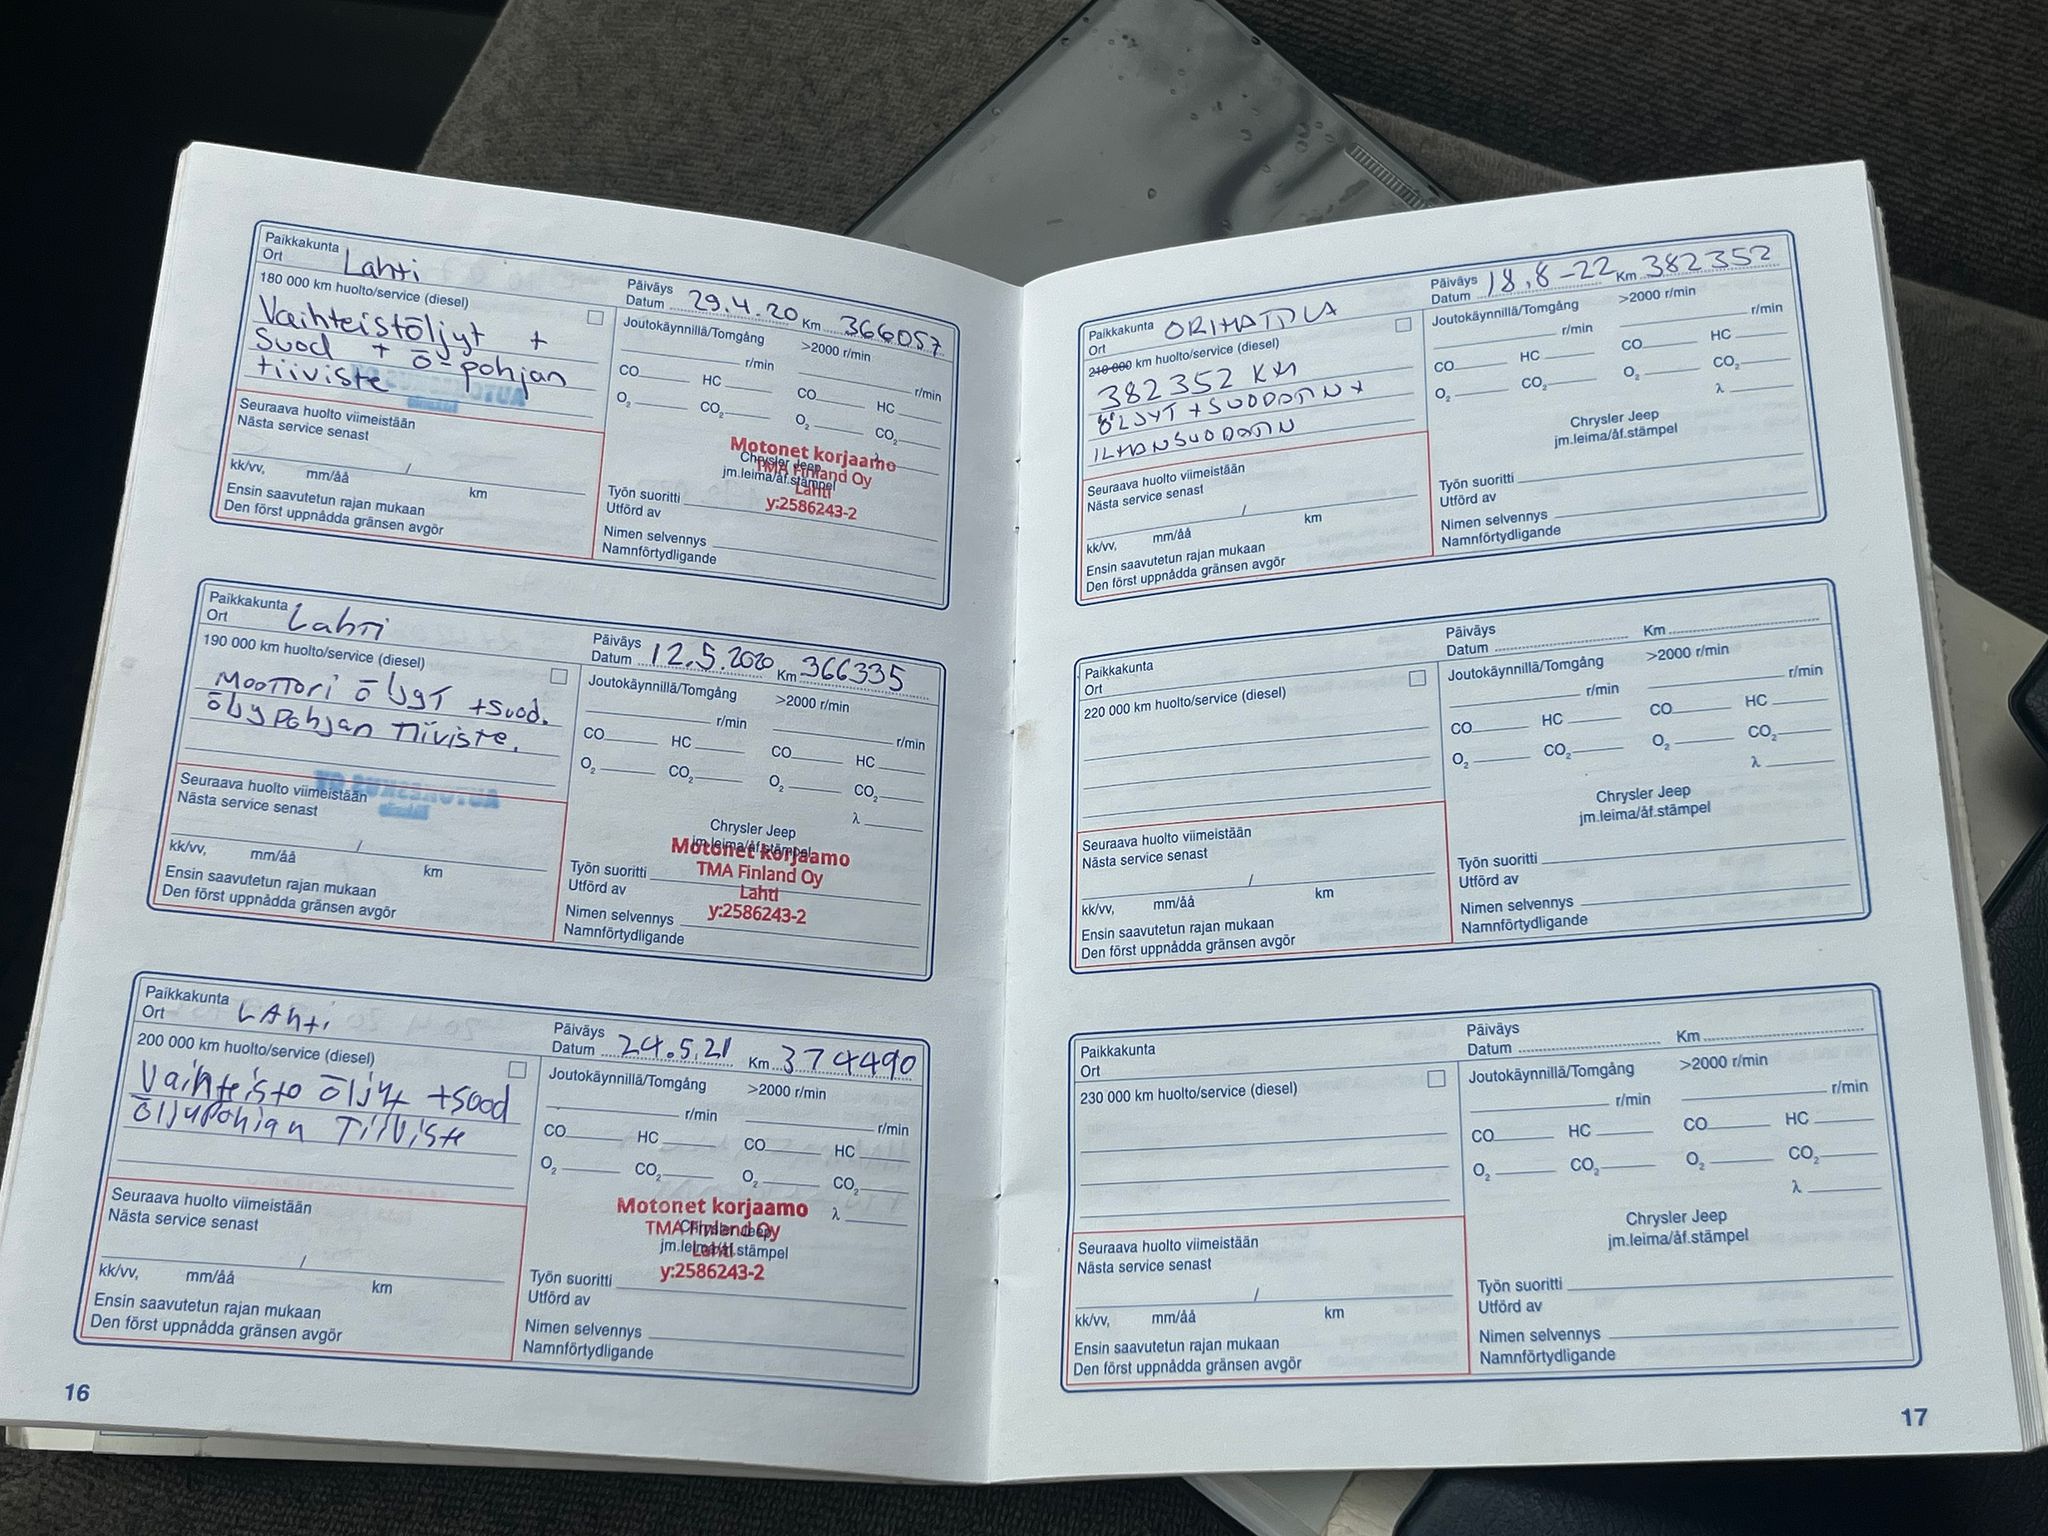 Paikkakunta Lahti
Ort
180 000 km huolto/service (diesel)
Vaihteistöljyt +
Suod + ö-pohjan
tiiviste
Seuraava huolto viimeistään
Nästa service senast
/
kk/vv, mm/åå km
Ensin saavutetun rajan mukaan
Den först uppnådda gränsen avgör
Päiväys
Datum 29.4.20 Km 366057
Joutokäynnillä/Tomgång >2000 r/min
r/min r/min
CO HC CO HC
O2 CO2 O2 CO2
λ
Motonet korjaamo
Chrysler Jeep
TMA Finland Oy
jm.leima/åf.stämpel
Lahti
y:2586243-2
Työn suoritti
Utförd av
Nimen selvennys
Namnförtydligande
Paikkakunta Lahti
Ort
190 000 km huolto/service (diesel)
Moottori öljyt +suod.
öljypohjan Tiiviste.
Seuraava huolto viimeistään
Nästa service senast
/
kk/vv, mm/åå km
Ensin saavutetun rajan mukaan
Den först uppnådda gränsen avgör
Päiväys
Datum 12.5.2020 Km 366335
Joutokäynnillä/Tomgång >2000 r/min
r/min r/min
CO HC CO HC
O2 CO2 O2 CO2
λ
Chrysler Jeep
jm.leima/åf.stämpel
Motonet korjaamo
TMA Finland Oy
Lahti
y:2586243-2
Työn suoritti
Utförd av
Nimen selvennys
Namnförtydligande
Paikkakunta LAhti
Ort
200 000 km huolto/service (diesel)
Vaihteisto öljyt +suod
öljypohjan Tiiviste
Seuraava huolto viimeistään
Nästa service senast
/
kk/vv, mm/åå km
Ensin saavutetun rajan mukaan
Den först uppnådda gränsen avgör
Päiväys
Datum 24.5.21 Km 374490
Joutokäynnillä/Tomgång >2000 r/min
r/min r/min
CO HC CO HC
O2 CO2 O2 CO2
λ
Motonet korjaamo
TMA Finland Oy
Chrysler Jeep
jm.leima/åf.stämpel
Lahti
y:2586243-2
Työn suoritti
Utförd av
Nimen selvennys
Namnförtydligande
16
Paikkakunta ORIMATTILA
Ort
210 000 km huolto/service (diesel)
382352 KM
ÖLJYT + SUODATIN +
ILMANSUODATIN
Seuraava huolto viimeistään
Nästa service senast
/
kk/vv, mm/åå km
Ensin saavutetun rajan mukaan
Den först uppnådda gränsen avgör
Päiväys
Datum 18.8-22 Km 382352
Joutokäynnillä/Tomgång >2000 r/min
r/min r/min
CO HC CO HC
O2 CO2 O2 CO2
λ
Chrysler Jeep
jm.leima/åf.stämpel
Työn suoritti
Utförd av
Nimen selvennys
Namnförtydligande
Paikkakunta
Ort
220 000 km huolto/service (diesel)
Seuraava huolto viimeistään
Nästa service senast
/
kk/vv, mm/åå km
Ensin saavutetun rajan mukaan
Den först uppnådda gränsen avgör
Päiväys
Datum Km
Joutokäynnillä/Tomgång >2000 r/min
r/min r/min
CO HC CO HC
O2 CO2 O2 CO2
λ
Chrysler Jeep
jm.leima/åf.stämpel
Työn suoritti
Utförd av
Nimen selvennys
Namnförtydligande
Paikkakunta
Ort
230 000 km huolto/service (diesel)
Seuraava huolto viimeistään
Nästa service senast
/
kk/vv, mm/åå km
Ensin saavutetun rajan mukaan
Den först uppnådda gränsen avgör
Päiväys
Datum Km
Joutokäynnillä/Tomgång >2000 r/min
r/min r/min
CO HC CO HC
O2 CO2 O2 CO2
λ
Chrysler Jeep
jm.leima/åf.stämpel
Työn suoritti
Utförd av
Nimen selvennys
Namnförtydligande
17